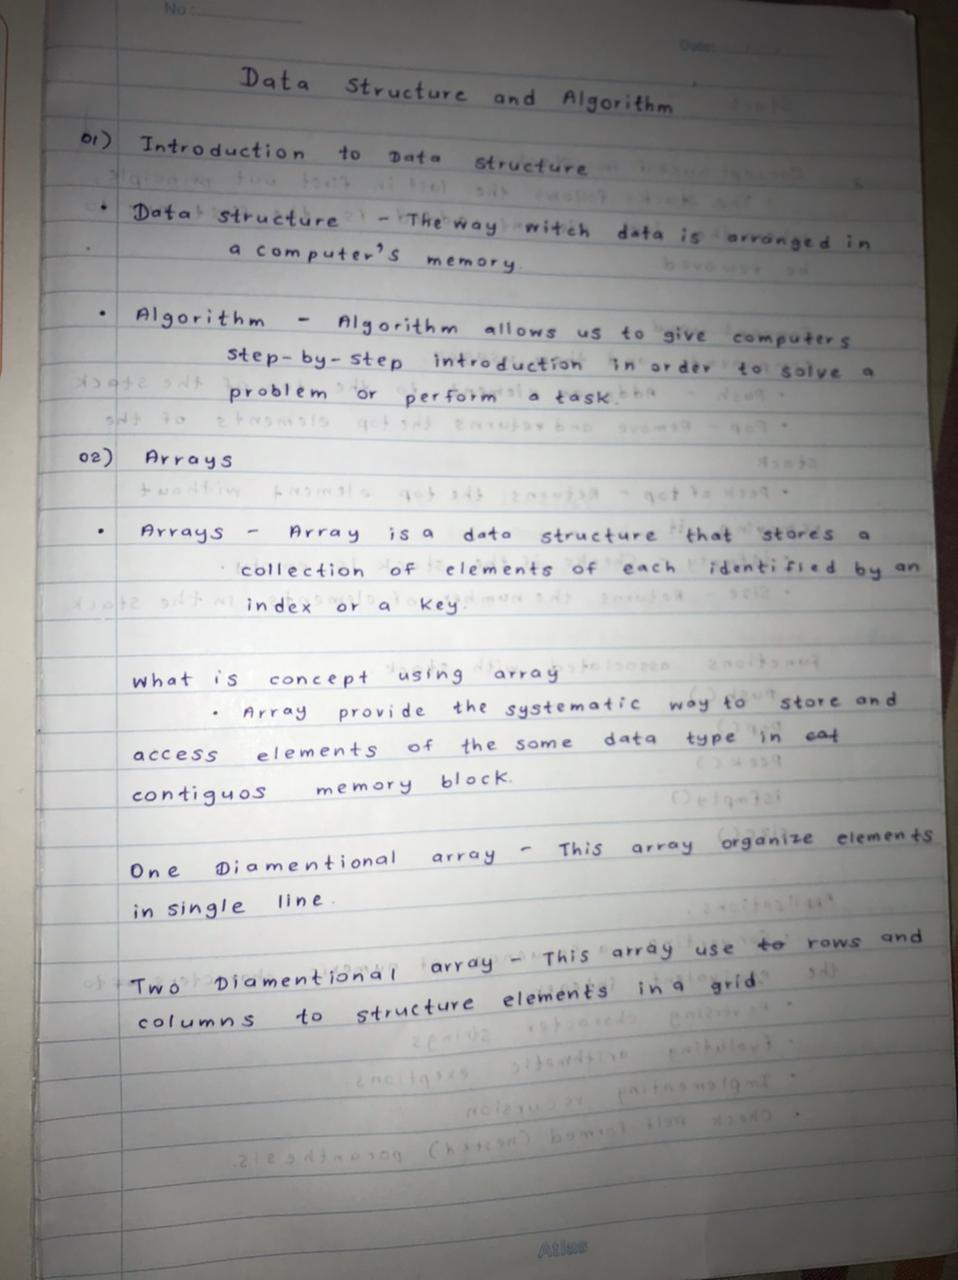 No:
Date:
Data structure and Algorithm
01) Introduction to Data structure
• Data structure - The way witch data is arranged in
a computer's memory.
• Algorithm - Algorithm allows us to give computers
step-by-step introduction in order to solve a
problem or perform a task.
02) Arrays
• Arrays - Array is a data structure that stores a
collection of elements of each identified by an
index or a key.
What is concept using array
• Array provide the systematic way to store and
access elements of the some data type in
contiguos memory block.
One Diamentional array - This array organize elements
in single line.
Two Diamentional array - This array use to rows and
columns to structure elements in a grid.
Atlas